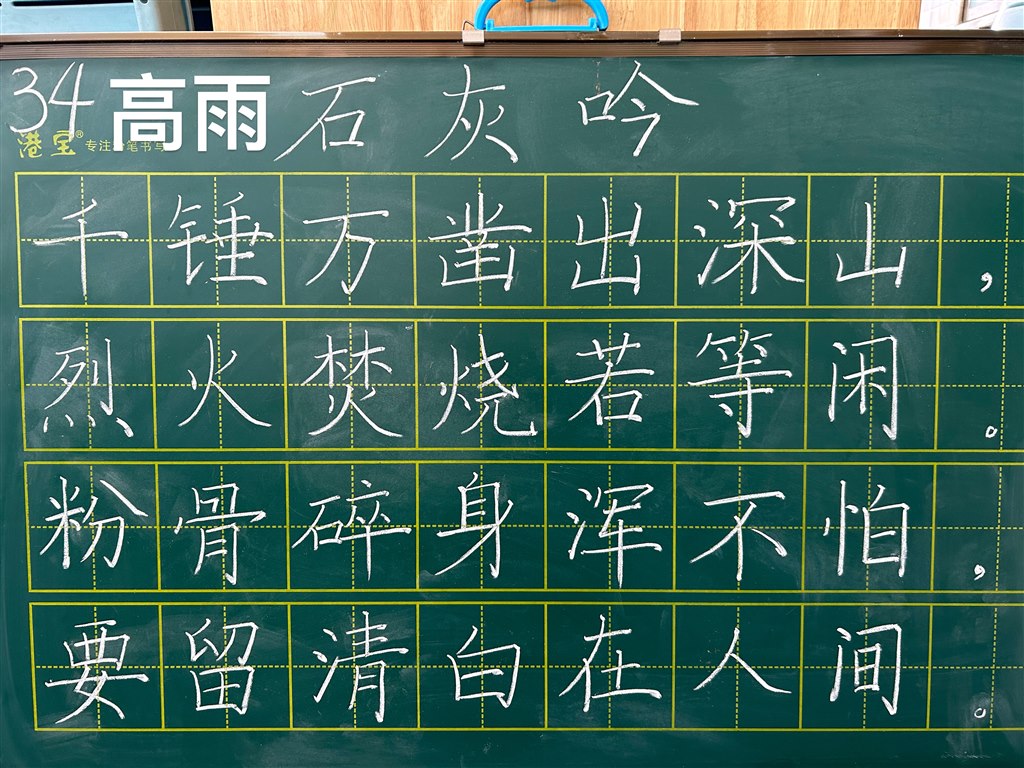 34 高雨 石灰吟
港宝® 专注 笔书写
千锤万凿出深山，
烈火焚烧若等闲。
粉骨碎身浑不怕，
要留清白在人间。